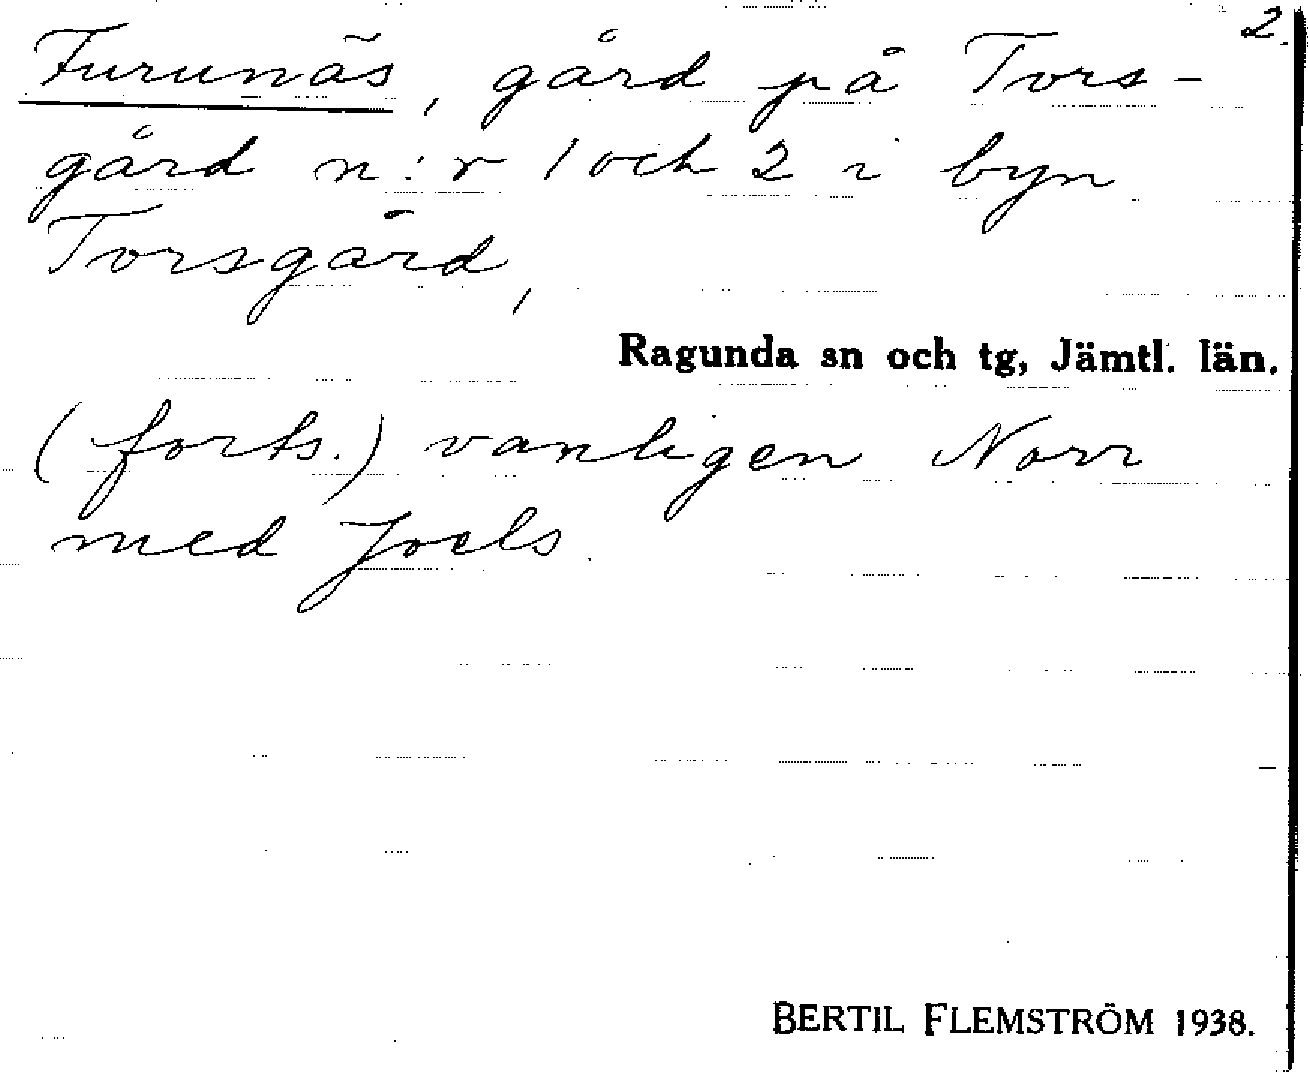 2.
Furunäs, gård på Tors-
gård n:r 1 och 2 i byn
Torsgård,
Ragunda sn och tg, Jämtl. län.
(forts.) vanligen Norr
med Joels
BERTIL FLEMSTRÖM 1938.